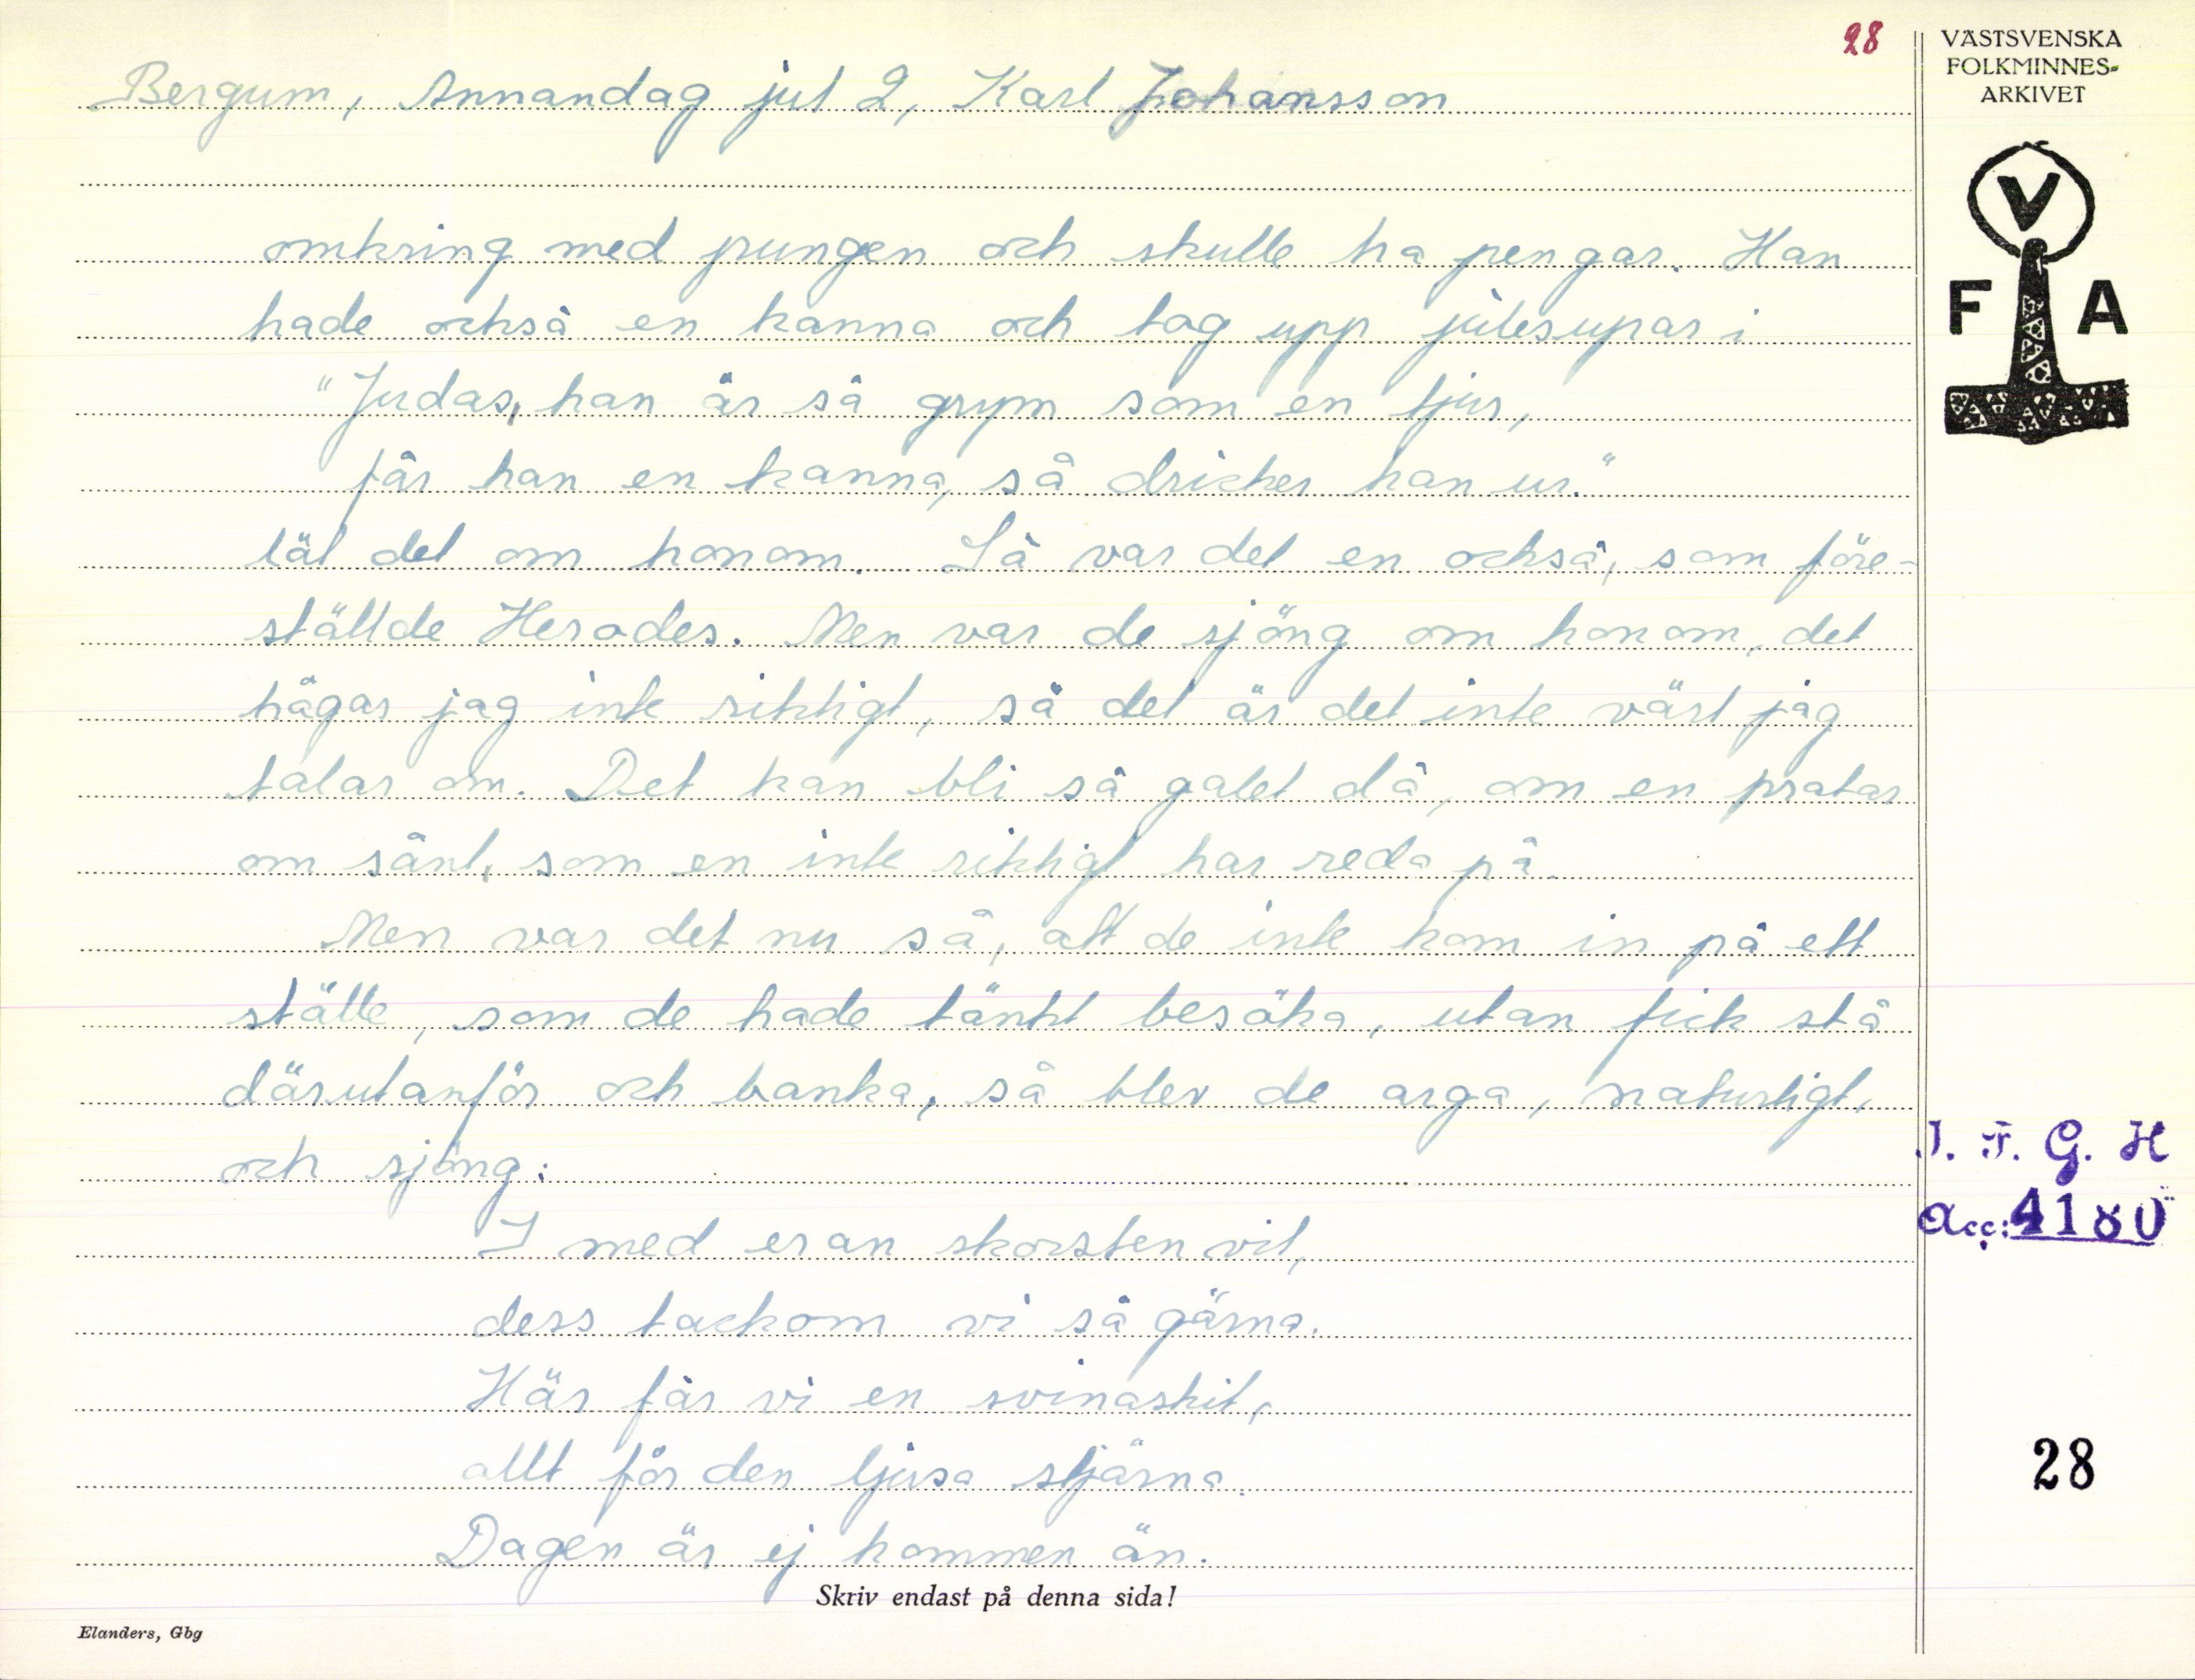 28
Bergum, Annandag jul 2, Karl Johansson
omkring med pungen och skulle ha pengar. Han
hade också en kanna och tog upp julesupar i
"Judas, han är så grym som en tjur,
får han en kanna, så dricker han ur."
lät det om honom. Så var det en också, som före-
ställde Herodes. Men var de sjöng om honom, det
hågar jag inte riktigt, så det är det inte värt jag
talar om. Det kan bli så galet då, om en pratar
om sånt, som en inte riktigt har reda på.
Men var det nu så, att de inte kom in på ett
ställe, som de hade tänkt besöka, utan fick stå
därutanför och banka, så blev de arga, naturligt,
och sjöng:
I med eran skorsten vit,
dess tackom vi så gärna.
Här får vi en svinaskit,
allt för den ljusa stjärna.
Dagen är ej kommen än.
Skriv endast på denna sida!
Elanders, Gbg
VÄSTSVENSKA
FOLKMINNES-
ARKIVET
V
F A
I. F. G. H
Acc: 4180
28